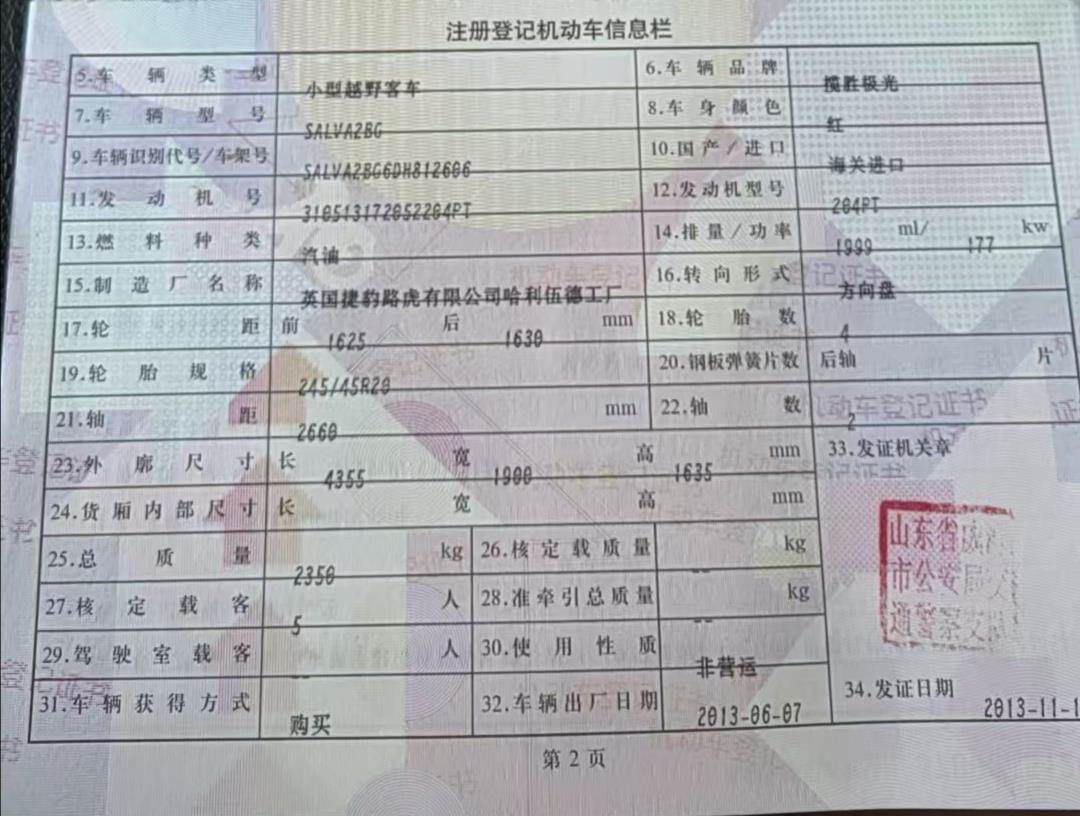 注册登记机动车信息栏
5.车辆类型 小型越野客车 6.车辆品牌 揽胜极光
7.车辆型号 SALVA2BG 8.车身颜色 红
9.车辆识别代号/车架号 SALVA2BG6DH812606 10.国产/进口 海关进口
11.发动机号 310513172052204PT 12.发动机型号 204PT
13.燃料种类 汽油 14.排量/功率 1999 ml/ 177 kw
15.制造厂名称 英国捷豹路虎有限公司哈利伍德工厂 16.转向形式 方向盘
17.轮距 前 1625 后 1630 mm 18.轮胎数 4
19.轮胎规格 245/45R20 20.钢板弹簧片数 后轴 片
21.轴距 2660 mm 22.轴数 2
23.外廓尺寸 长 4355 宽 1900 高 1635 mm 33.发证机关章
24.货厢内部尺寸 长 宽 高 mm
山东省
市公安局
通警察支队
25.总质量 2350 kg 26.核定载质量 -- kg
27.核定载客 5 人 28.准牵引总质量 -- kg
29.驾驶室载客 -- 人 30.使用性质 非营运
31.车辆获得方式 购买 32.车辆出厂日期 2013-06-07 34.发证日期 2013-11-1
第2页